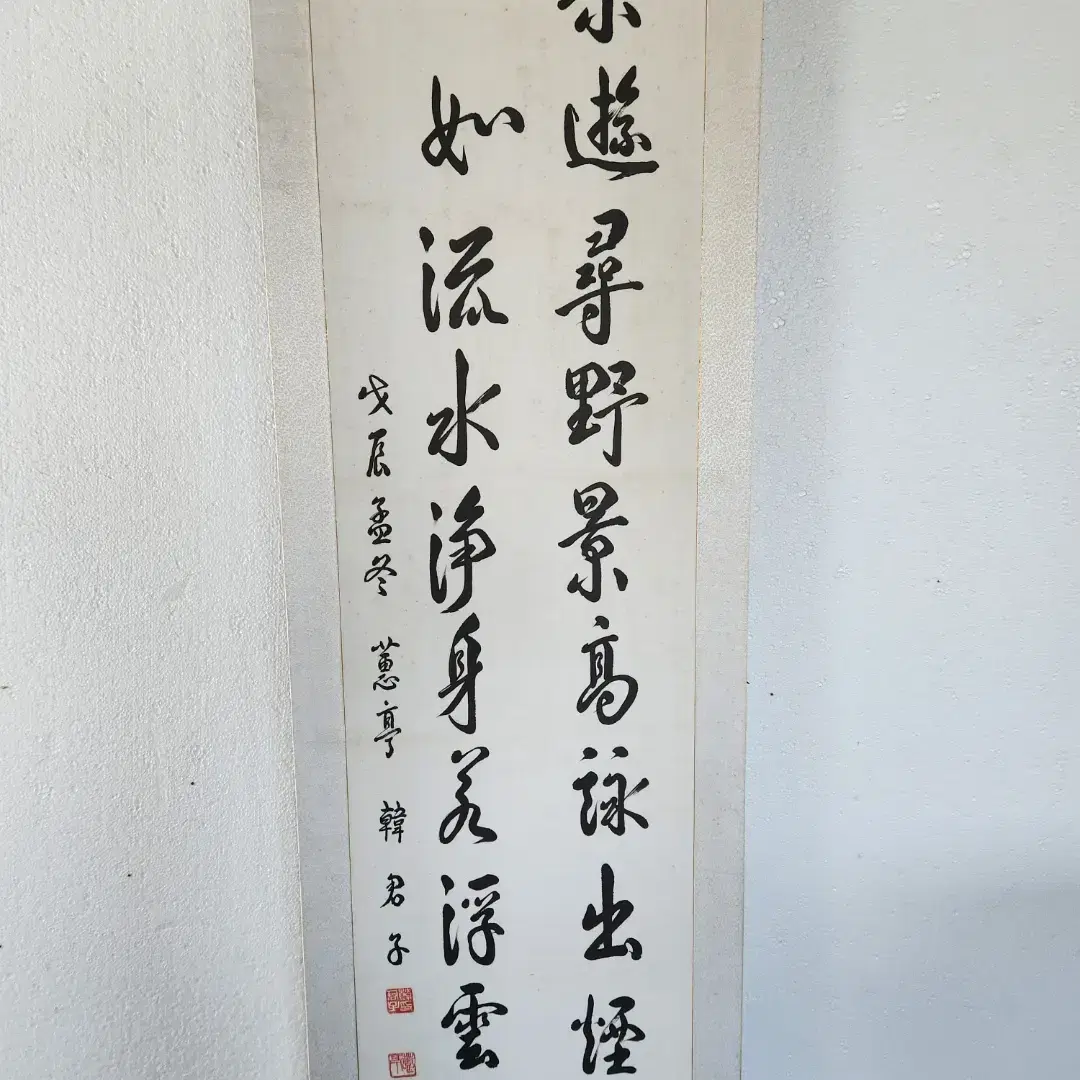 遊尋野景高詠出煙
如流水淨身若浮雲
戊辰孟冬 蕙亭 韓君子